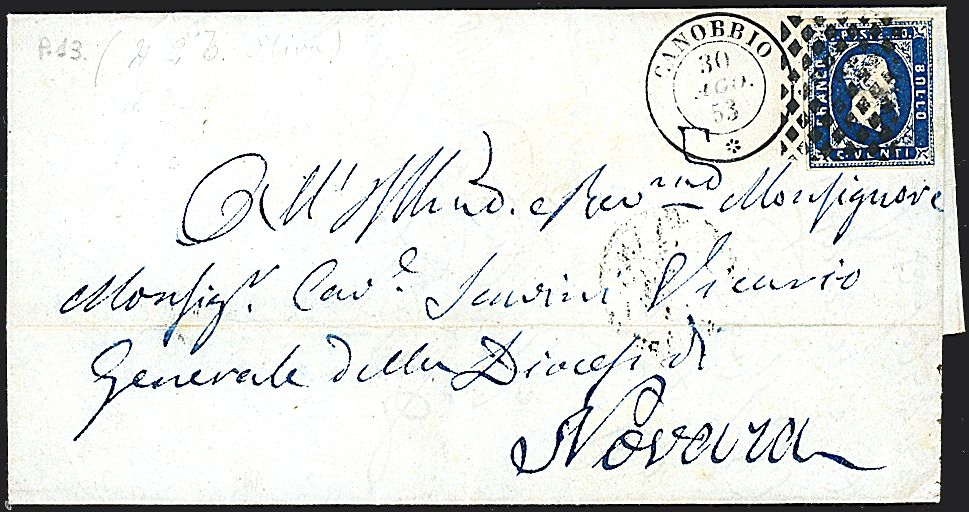 P.13.
CANOBBIO
30
AGO.
53
FRANCO
POSTE
BOLLO
C. VENTI
All' Ill.mo e Rev.mo Monsignore
Monsig.r Cav.e Vicario
Generale della Diocesi di
Novara